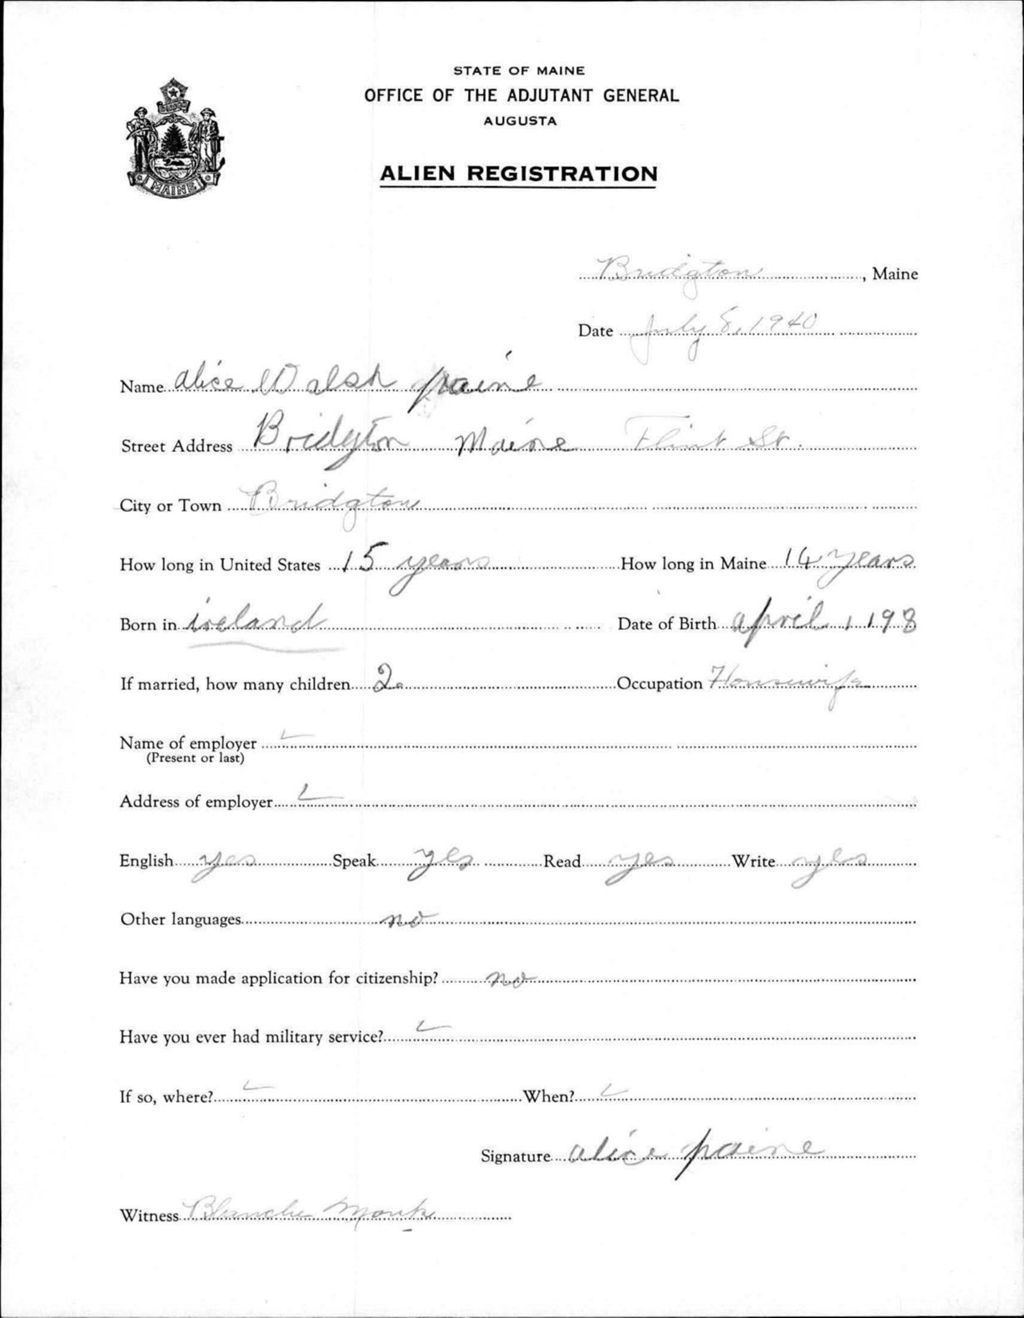 STATE OF MAINE
OFFICE OF THE ADJUTANT GENERAL
AUGUSTA
MAINE
ALIEN REGISTRATION
Bridgton, Maine
Date July 8, 1940
Name alice Walsh paine
Street Address Bridgton Maine Flint St.
City or Town Bridgton
How long in United States 15 years How long in Maine 14 years
Born in ireland Date of Birth april 1 198
If married, how many children 2 Occupation Housewife
Name of employer
(Present or last)
Address of employer
English yes Speak yes Read yes Write yes
Other languages no
Have you made application for citizenship? no
Have you ever had military service?
If so, where? When?
Signature alice paine
Witness Blanche Monk